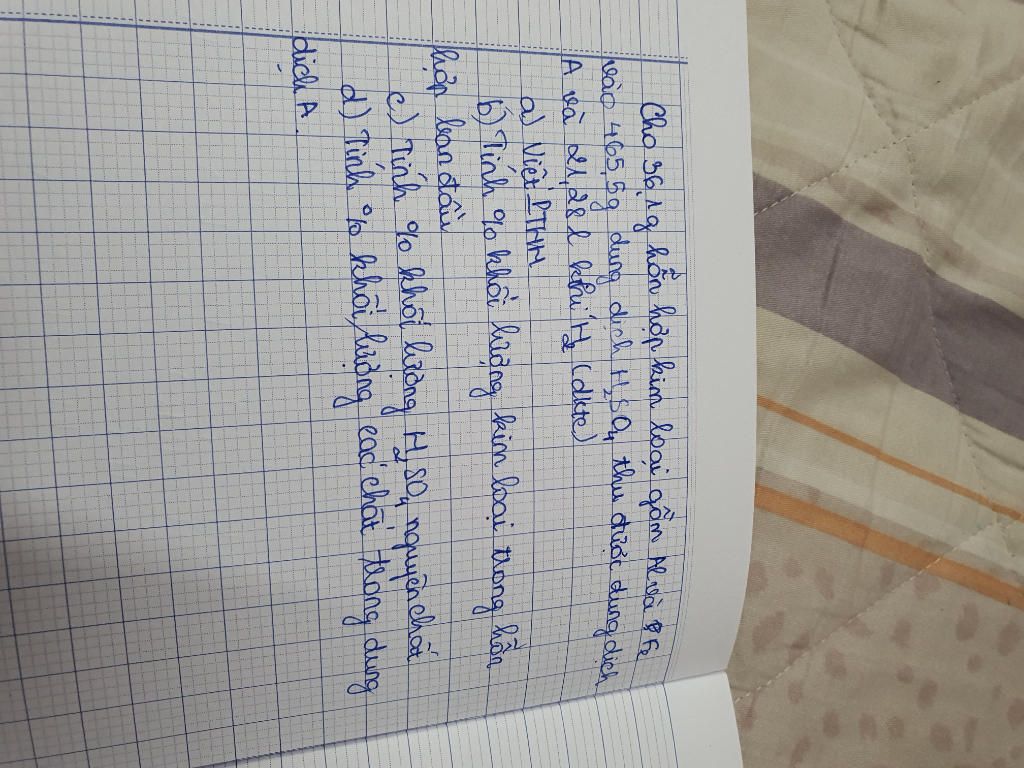 Cho 36,1g hỗn hợp kim loại gồm Al và Fe
vào 465,5g dung dịch H₂SO₄ thu được dung dịch
A và 21,28 l khí H₂ (đktc)
a) Viết PTHH
b) Tính % khối lượng kim loại trong hỗn
hợp ban đầu
c) Tính % khối lượng H₂SO₄ nguyên chất
d) Tính % khối lượng các chất trong dung
dịch A.